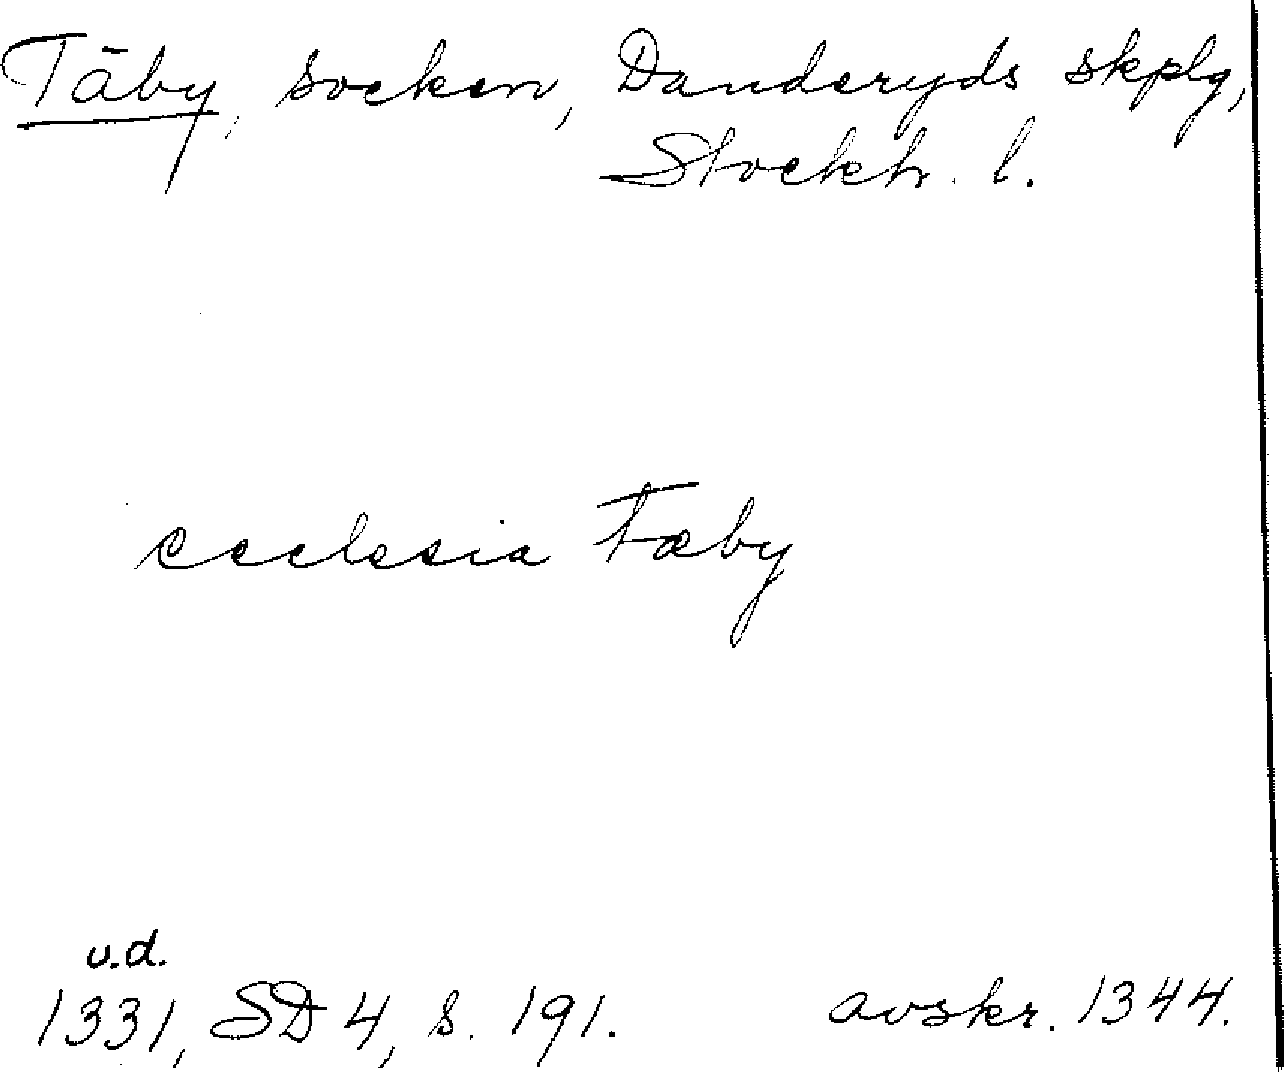 Täby, socken, Danderyds skplg,
Stockh. l.
ecclesia Tæby
u.d.
1331, SD 4, s. 191. avskr. 1344.